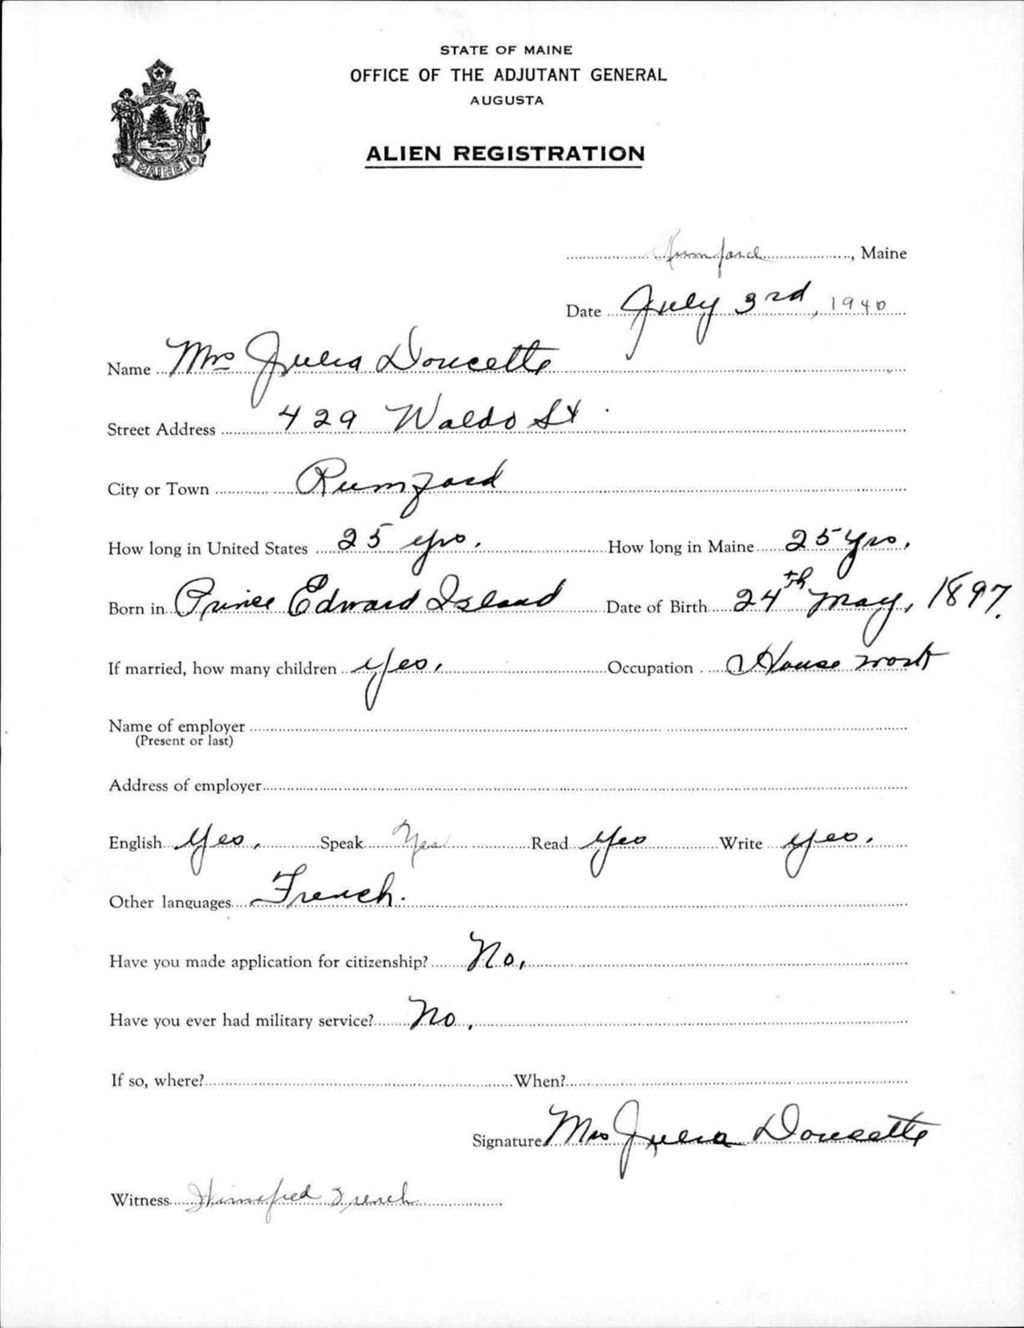 STATE OF MAINE
OFFICE OF THE ADJUTANT GENERAL
AUGUSTA
ALIEN REGISTRATION
MAINE
Rumford, Maine
Date July 3rd, 1940
Name Mrs Julia Doucette
Street Address 429 Waldo St.
City or Town Rumford
How long in United States 25 yrs. How long in Maine 25 yrs.
Born in Prince Edward Island Date of Birth 24th May, 1897.
If married, how many children yes. Occupation House work
Name of employer
(Present or last)
Address of employer
English Yes. Speak Yes Read Yes Write Yes.
Other languages French.
Have you made application for citizenship? No.
Have you ever had military service? No.
If so, where? When?
Signature Mrs Julia Doucette
Witness Winnefred French